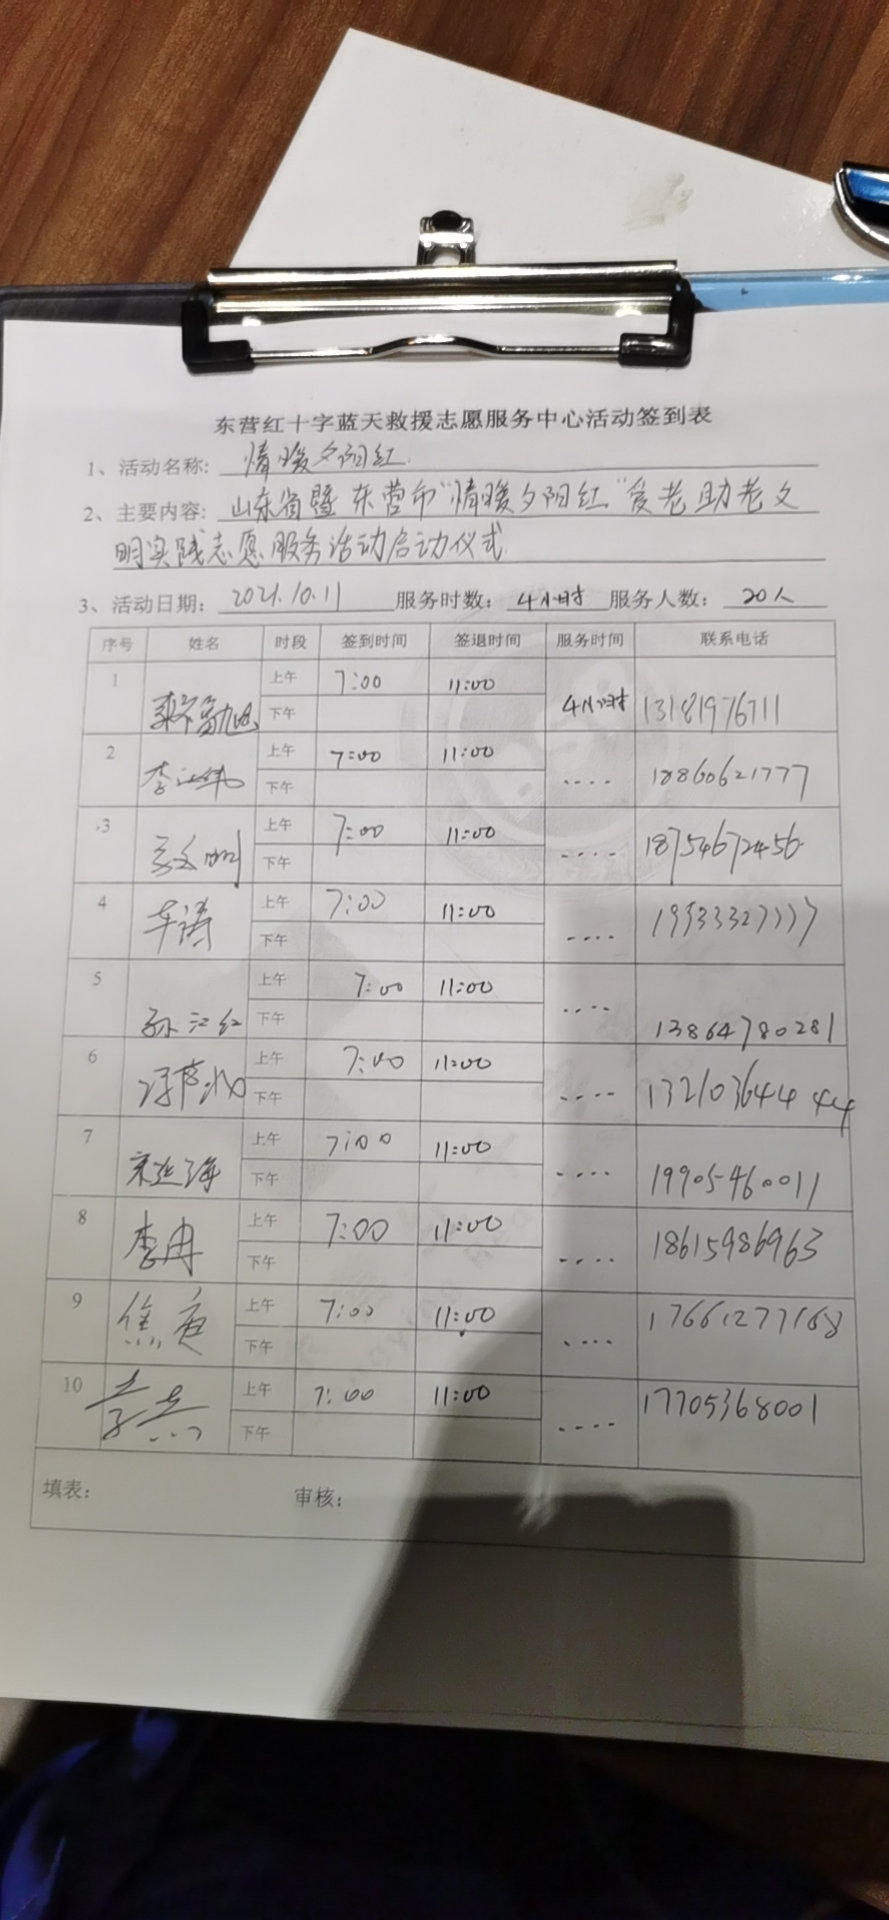 东营红十字蓝天救援志愿服务中心活动签到表
1、活动名称: 情暖夕阳红
2、主要内容: 山东省暨东营市"情暖夕阳红"爱老助老文
明实践志愿服务活动启动仪式
3、活动日期: 2021.10.11 服务时数: 4小时 服务人数: 20人
序号 姓名 时段 签到时间 签退时间 服务时间 联系电话
1 上午 7:00 11:00 4小时 13181976711
下午
2 上午 7:00 11:00 .... 18860621777
下午
3 上午 7:00 11:00 .... 18754672456
下午
4 车涛 上午 7:00 11:00 ....
下午
5 孙江红 上午 7:00 11:00 .... 13864780281
下午
6 上午 7:00 11:00 .... 13210364444
下午
7 宋延海 上午 7:00 11:00 .... 19905460011
下午
8 李冉 上午 7:00 11:00 .... 18615986963
下午
9 上午 7:00 11:00 .... 17661277168
下午
10 上午 7:00 11:00 .... 17705368001
下午
填表: 审核: